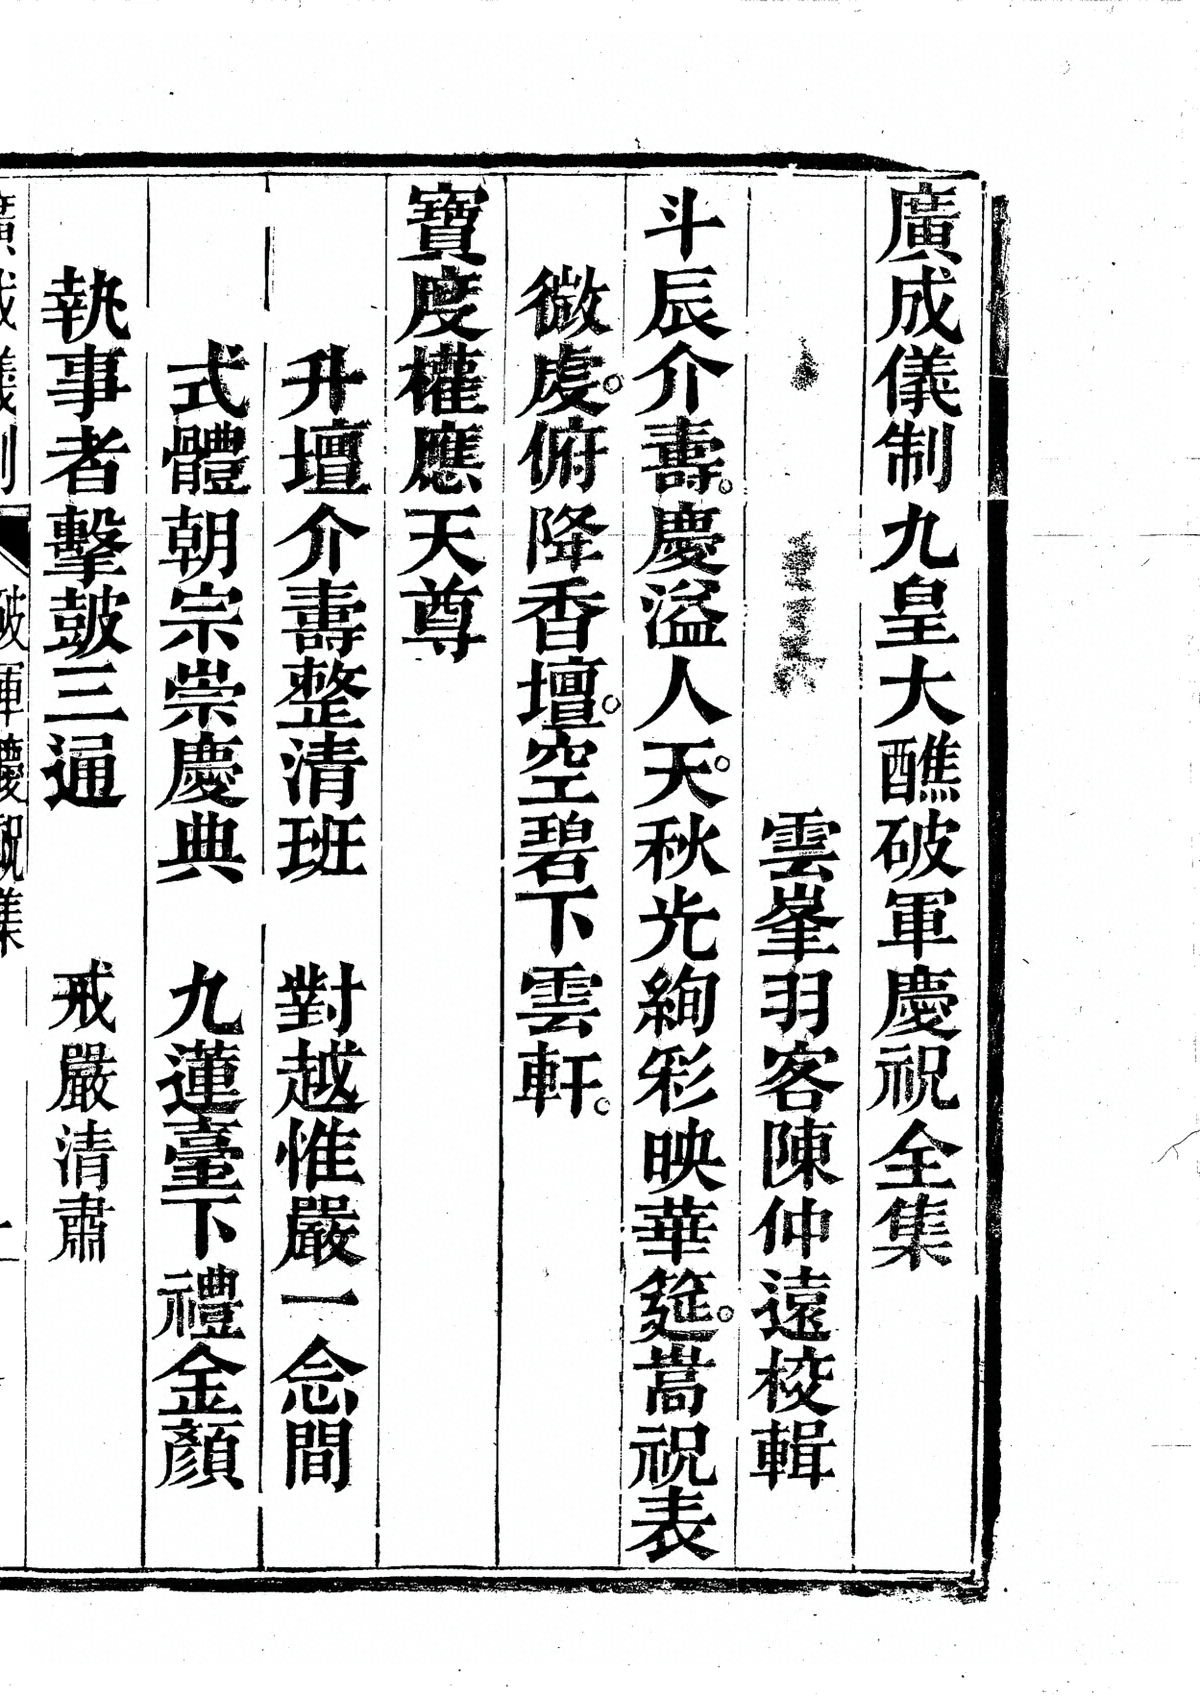 廣成儀制九皇大醮破軍慶祝全集
雲峯羽客陳仲遠校輯
斗辰介壽。慶溢人天。秋光絢彩映華筵。嵩祝表
微虔。俯降香壇。空碧下雲軒。
寶度權應天尊
升壇介壽整清班　對越惟嚴一念間
式體朝宗崇慶典　九蓮臺下禮金顏
執事者擊鼓三通　戒嚴清肅
廣成儀制　破軍慶祝集　一